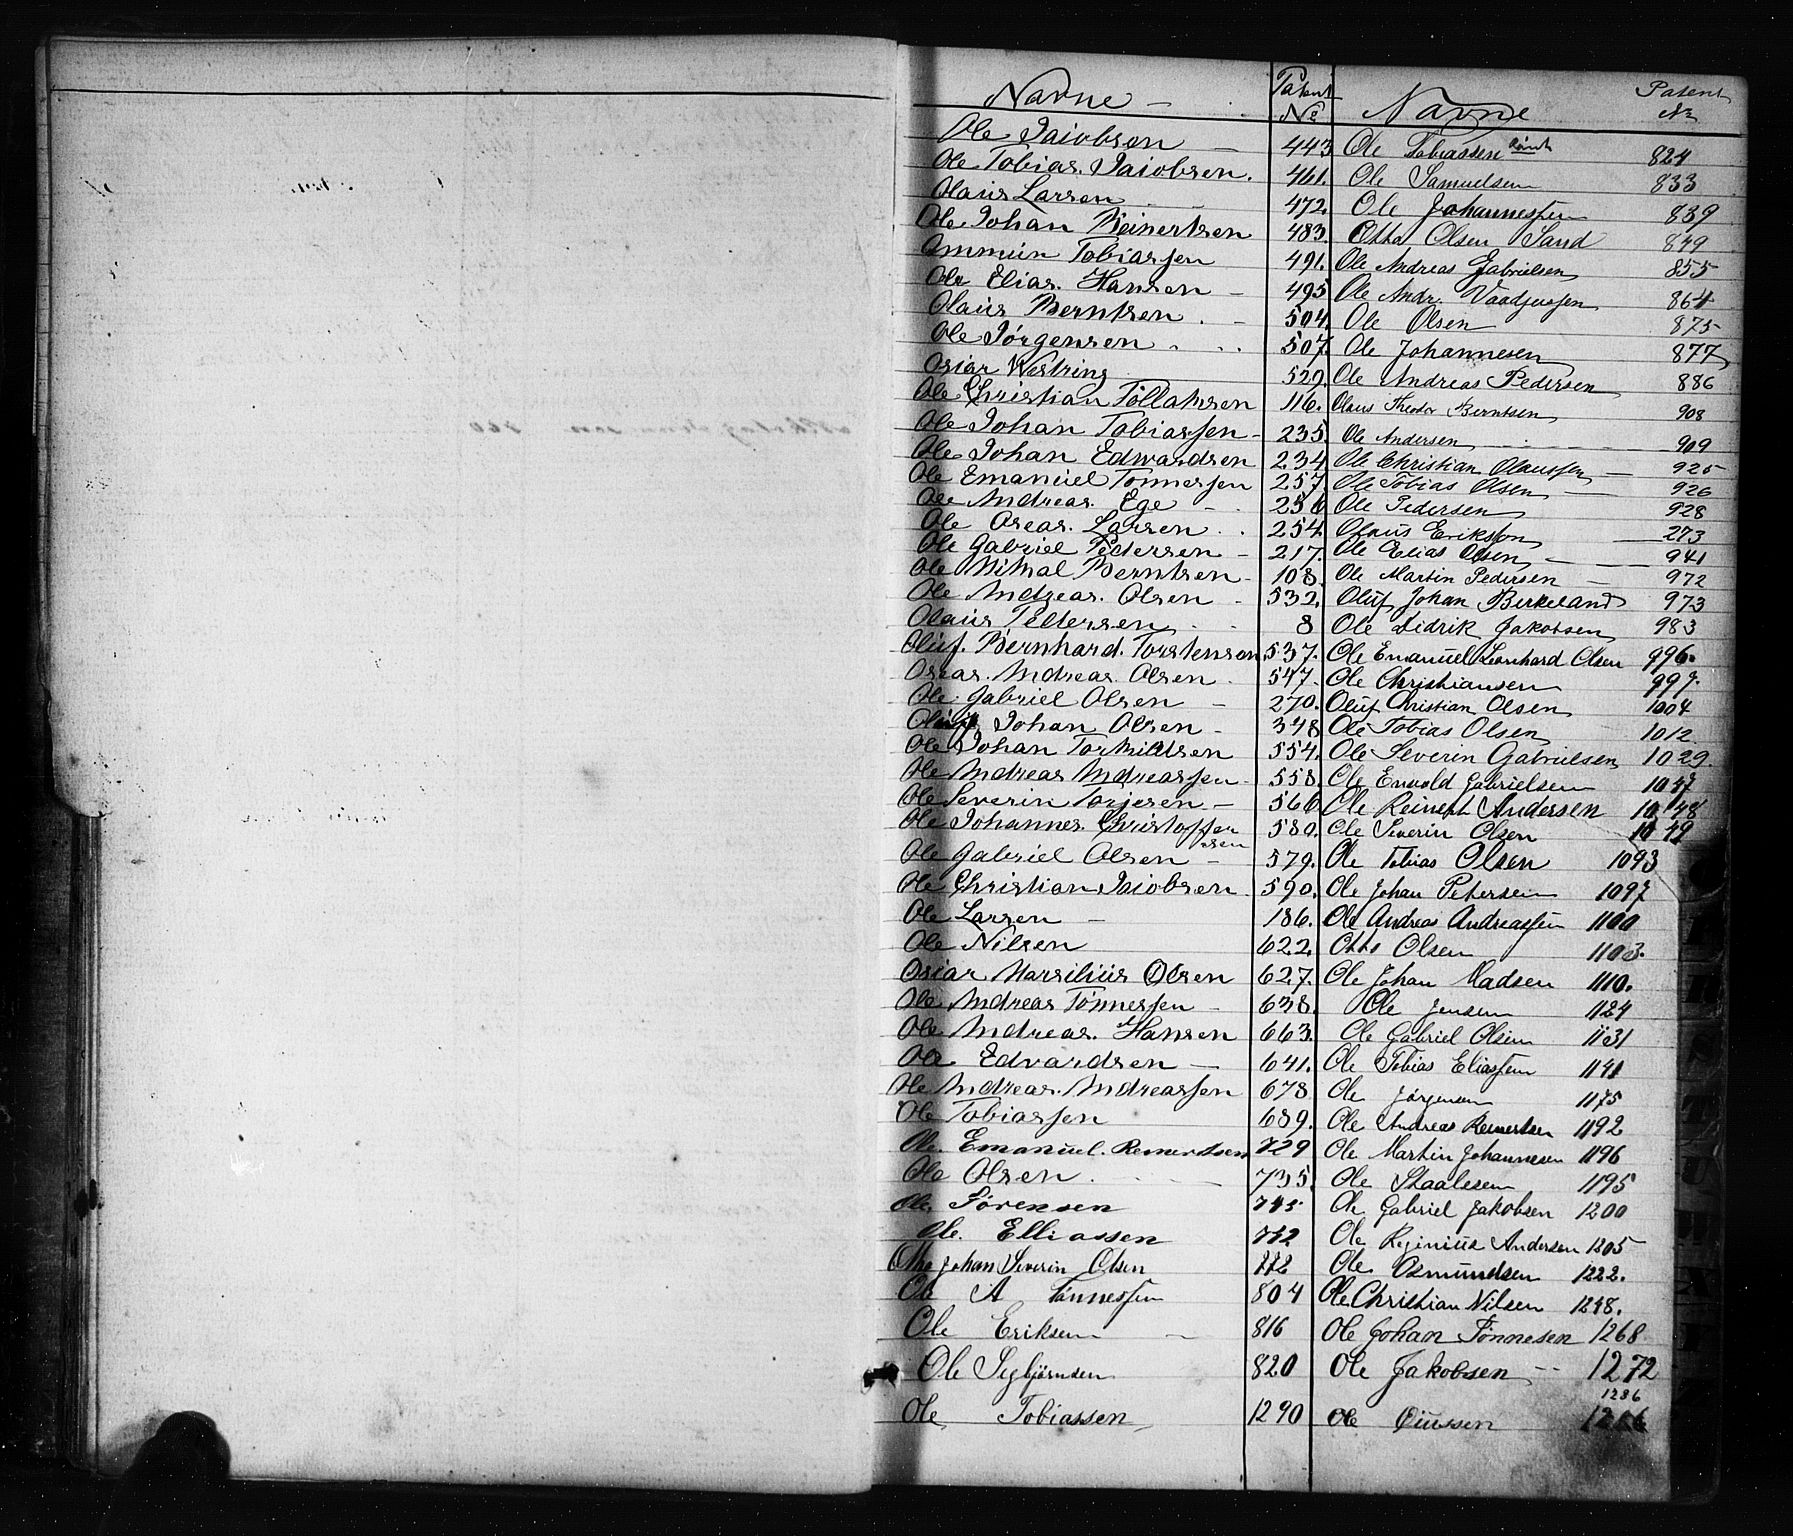 Navne — Patent №
Ole Jacobsen — 443
Ole Tobias Jacobsen. 461.
Olaus Larsen 472.
Ole Johan Reinertsen 483.
Ommun Tobiassen 491.
Ole Elias Hansen — 495
Olaus Berntsen . — 504.
Ole Jørgensen . . . 507.
Oscar Westring 529.
Ole Christian Tollaksen 116.
Ole Johan Tobiassen — 235.
Ole Johan Edwardsen 234.
Ole Emanuel Tønnessen 257.
Ole Andreas Ege — . 256
Ole Oscar Larsen . . 254.
Ole Gabriel Pedersen — 217.
Ole Mikal Berntsen — 108.
Ole Andreas. Olsen — 532.
Olaus Pedersen . . 8
Oluf. Bernhard. Torstensen 537.
Oscar. Andreas. Olsen . 547.
Ole Gabriel Olsen — 270.
Johan Olsen — 348
Ole Johan Tormodsen 554.
Ole Andreas Andreassen — 558.
Ole Severin Torjesen — 566
Ole Johannes. Christoffersen 580.
Ole Gabriel Olsen — 579.
Ole Christian Jacobsen 590.
Ole Larsen — 186.
Ole Nilsen 622.
Oscar Marsilius Olsen 627.
Ole Andreas Tønnessen — 638.
Ole Andreas. Hansen 663.
Ole Edvardsen — 641.
Ole Andreas. Andreassen 678
Ole Tobiassen 689.
Ole. Emanuel. Reinertsen 729
Ole Olsen . — — 735.
Ole. Sørensen 745
Ole. Elliassen 752
Otto Johan Severin Olsen 772
Ole A Tønnessen 804
Ole Eriksen — 816
Ole Segbjørnsen 820
Ole Tobiassen 1290
Navne Patent №
Ole Tobiassen 824
Ole Samuelsen 833
Ole Johannessen 839
Otto Olsen Sand 849
Ole Andreas Gabrielsen 855
Ole Andr. 864
Ole Olsen 875
Ole Johannesen 877
Ole Andreas Pedersen 886
Olaus Theodor Berntsen 908
Ole Andersen — — — 909
Ole Christian Olaussen — 925
Ole Tobias Olsen — 926
Ole Pedersen 928
Olaus Erikson — 273
Ole Elias Olsen — — 941
Ole Martin Pedersen — 972
Oluf Johan Birkeland 973
Ole Didrik Jakobsen 983
Ole Emanuel Leonhard Olsen 996.
Ole Christiansen 997.
Oluf Christian Olsen 1004
Ole Tobias Olsen 1012
Ole Severin Gabrielsen 1029.
Ole Enevold Gabrielsen 1047
Ole Reinert Andersen 1048
Ole Severin Olsen 1049
Ole Tobias Olsen 1093
Ole Johan Petersen 1097
Ole Andreas Andreassen 1100
Otto Olsen 1103.
Ole Johan Madsen 1110.
Ole Jensen 1124
Ole Gabriel Olsen 1131
Ole Tobias Eliassen 1141
Ole Jørgensen 1175
Ole Andreas Reinertsen 1192
Ole Martin Johannesen 1196
Ole Staalesen 1195
Ole Gabriel Jakobsen 1200
Ole Reginius Andersen 1205
Ole Osmundsen 1222.
Ole Christian Nilsen 1248.
Ole Johan Tønnesen 1268
Ole Jakobsen — 1272
1286
Ole